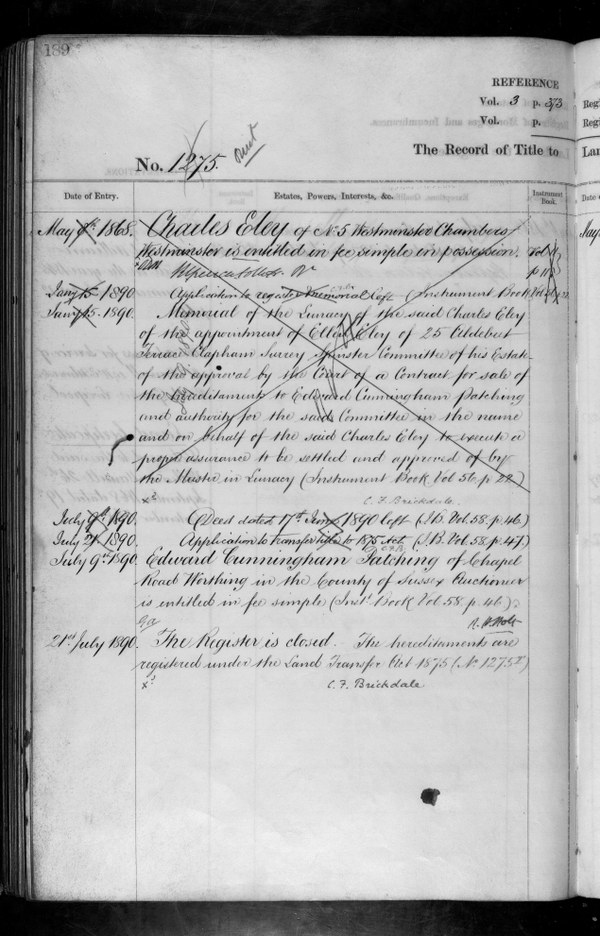 189
REFERENCE
Vol. 3 p. 373
Vol. p.
The Record of Title to
No. 1275.
Date of Entry.
Estates, Powers, Interests, &c.
Instrument Book.
May 9th 1868. Charles Eley of No. 5 Westminster Chambers
Westminster is entitled in fee simple in possession. Vol
p 11
Jany 15 1890 Application to register Memorial left (Instrument Book Vol
Jany 15. 1890. Memorial of the Lunacy of the said Charles Eley
of the appointment of Ellen Eley of 25
Terrace Clapham Surrey Spinster Committee of his Estate
of the approval by the Court of a Contract for sale of
the hereditaments to Edward Cunningham Patching
and authority for the said Committee in the name
and on behalf of the said Charles Eley to execute a
proper assurance to be settled and approved of by
the Master in Lunacy (Instrument Book Vol 56. p. 22)
C. F. Brickdale.
July 9th 1890. Deed dated 17th 1890 left (I.B. Vol. 58. p. 46)
July 21 1890. Application to transfer title to 1875 Act (I.B. Vol. 58. p. 47)
July 9th 1890. Edward Cunningham Patching of Chapel
Road Worthing in the County of Sussex Auctioneer
is entitled in fee simple (Inst. Book Vol. 58. p. 46)
R. H. Holt
21st July 1890. The Register is closed. The hereditaments are
registered under the Land Transfer Act 1875 (No 1275
C. F. Brickdale
Regi
Regi
Lan
Date o